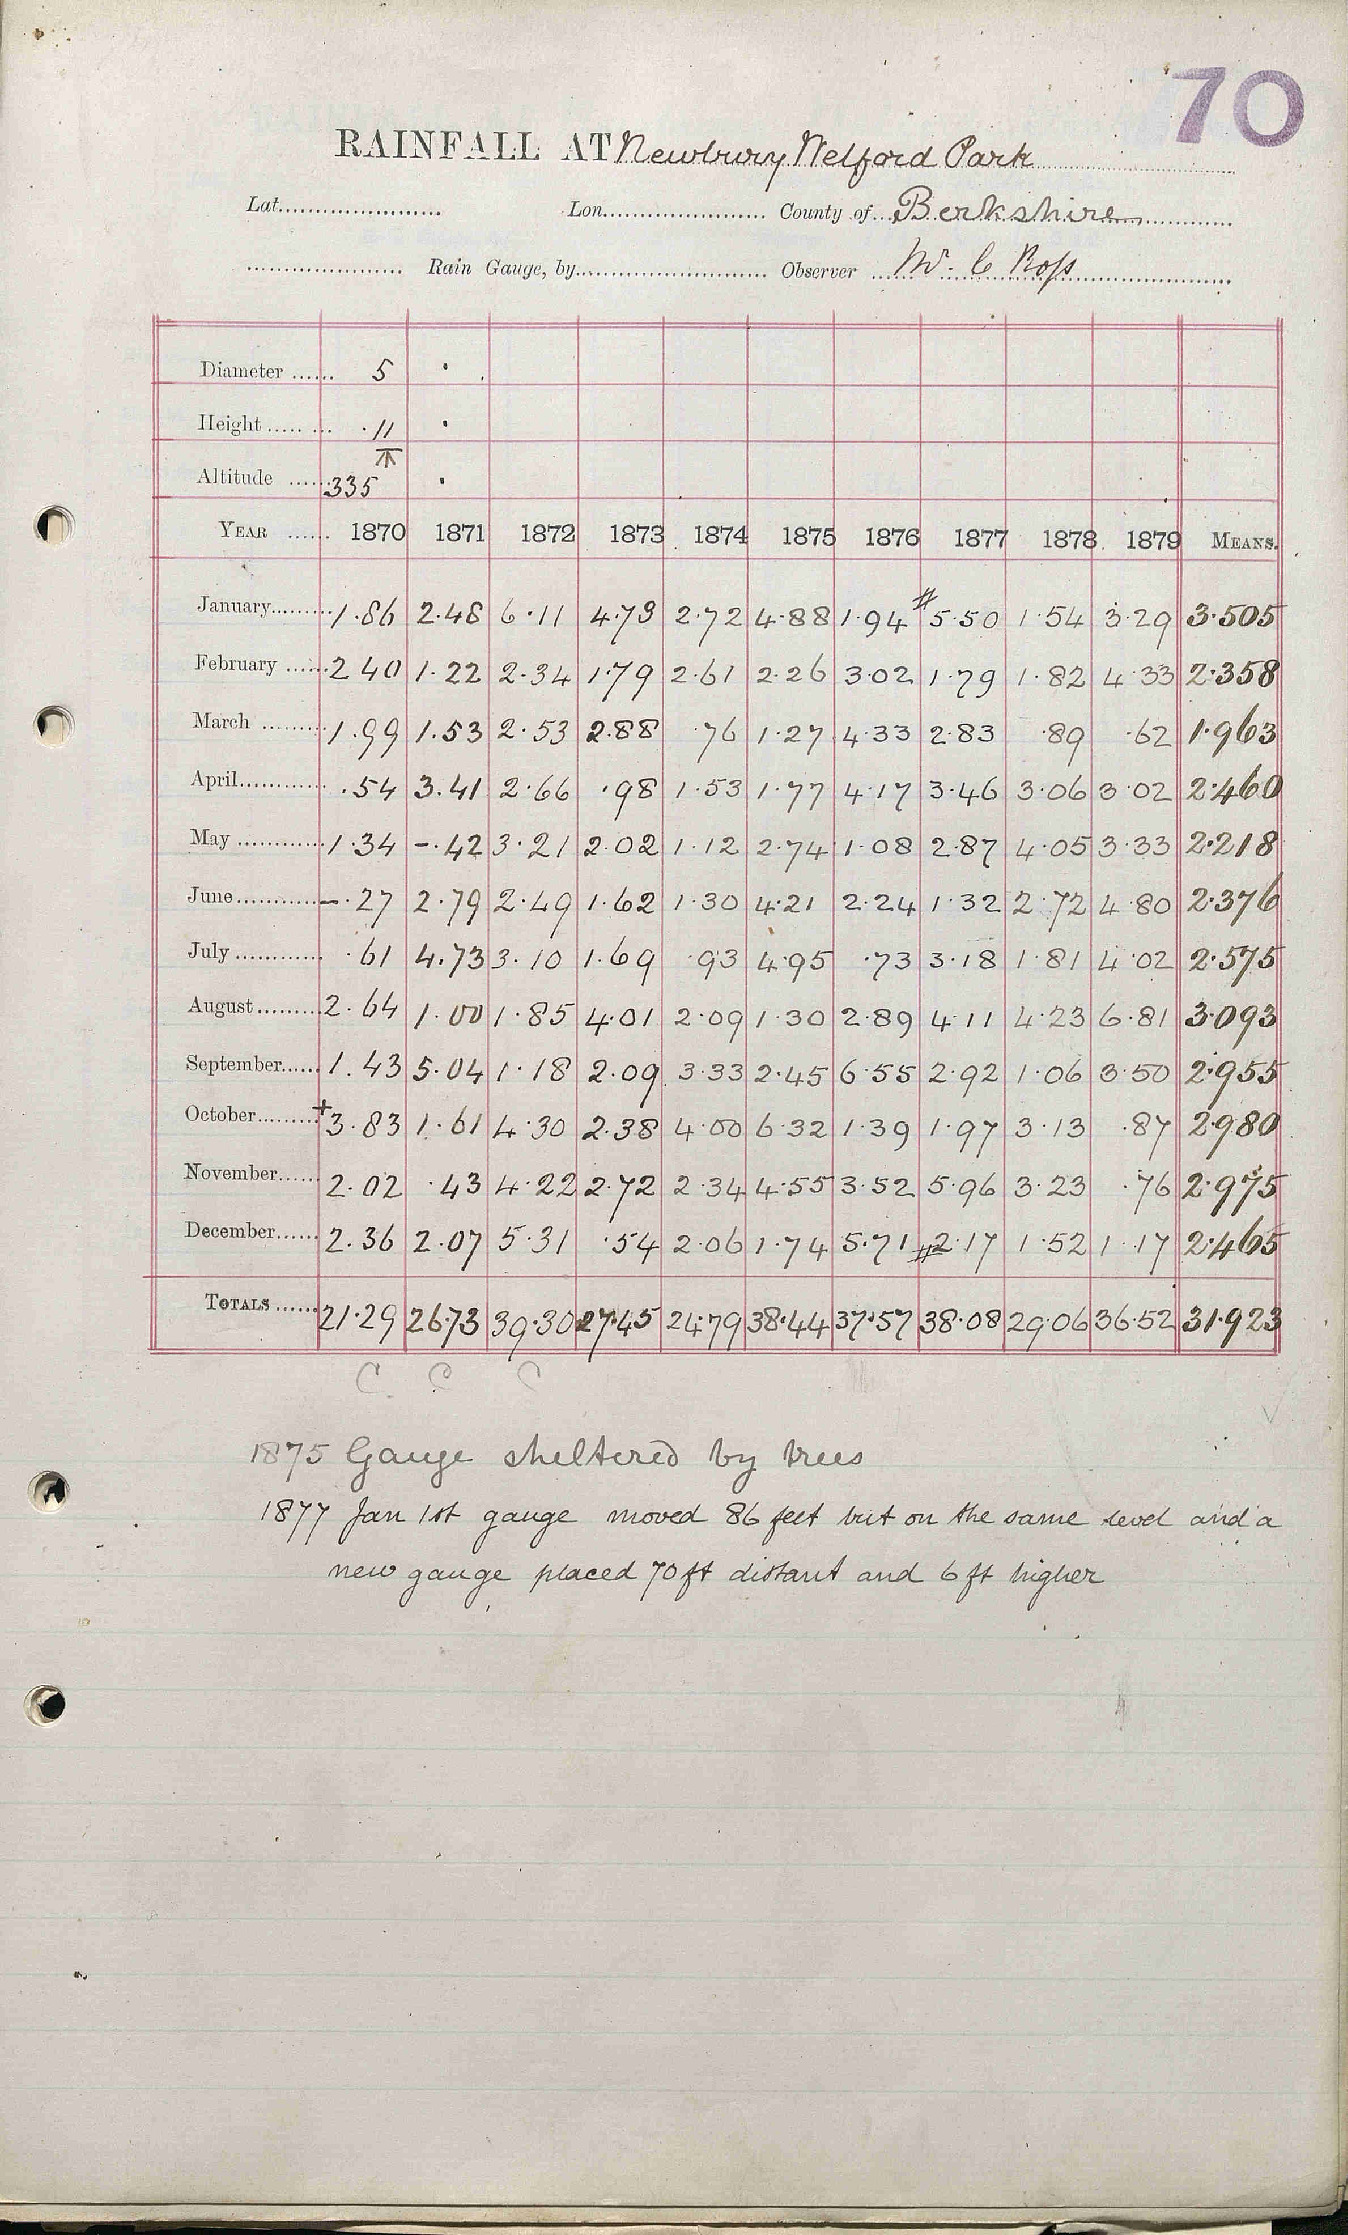 70
RAINFALL AT Newbury Welford Park
Lat. Lon. County of Berkshire
Rain Gauge, by Observer Mr. C Ross
Diameter 5 .
Height .11 .
Altitude 335 .
YEAR 1870 1871 1872 1873 1874 1875 1876 1877 1878 1879 MEANS.
January 1.86 2.48 6.11 4.73 2.72 4.88 1.94 #5.50 1.54 3.29 3.505
February 2.40 1.22 2.34 1.79 2.61 2.26 3.02 1.79 1.82 4.33 2.358
March 1.99 1.53 2.53 2.88 .76 1.27 4.33 2.83 .89 .62 1.963
April .54 3.41 2.66 .98 1.53 1.77 4.17 3.46 3.06 3.02 2.460
May 1.34 -.42 3.21 2.02 1.12 2.74 1.08 2.87 4.05 3.33 2.218
June -.27 2.79 2.49 1.62 1.30 4.21 2.24 1.32 2.72 4.80 2.376
July .61 4.73 3.10 1.69 .93 4.95 .73 3.18 1.81 4.02 2.575
August 2.64 1.00 1.85 4.01 2.09 1.30 2.89 4.11 4.23 6.81 3.093
September 1.43 5.04 1.18 2.09 3.33 2.45 6.55 2.92 1.06 3.50 2.955
October +3.83 1.61 4.30 2.38 4.00 6.32 1.39 1.97 3.13 .87 2.980
November 2.02 .43 4.22 2.72 2.34 4.55 3.52 5.96 3.23 .76 2.975
December 2.36 2.07 5.31 .54 2.06 1.74 5.71 #2.17 1.52 1.17 2.465
TOTALS 21.29 26.73 39.30 27.45 24.79 38.44 37.57 38.08 29.06 36.52 31.923
C. C C
1875 Gauge sheltered by trees
1877 Jan 1st gauge moved 86 feet but on the same level and a
new gauge placed 70 ft distant and 6 ft higher